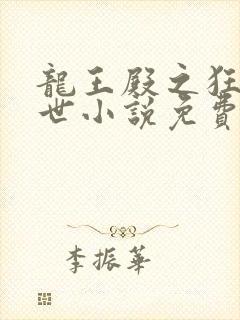 龍王殿之狂
世小說免費
李振華